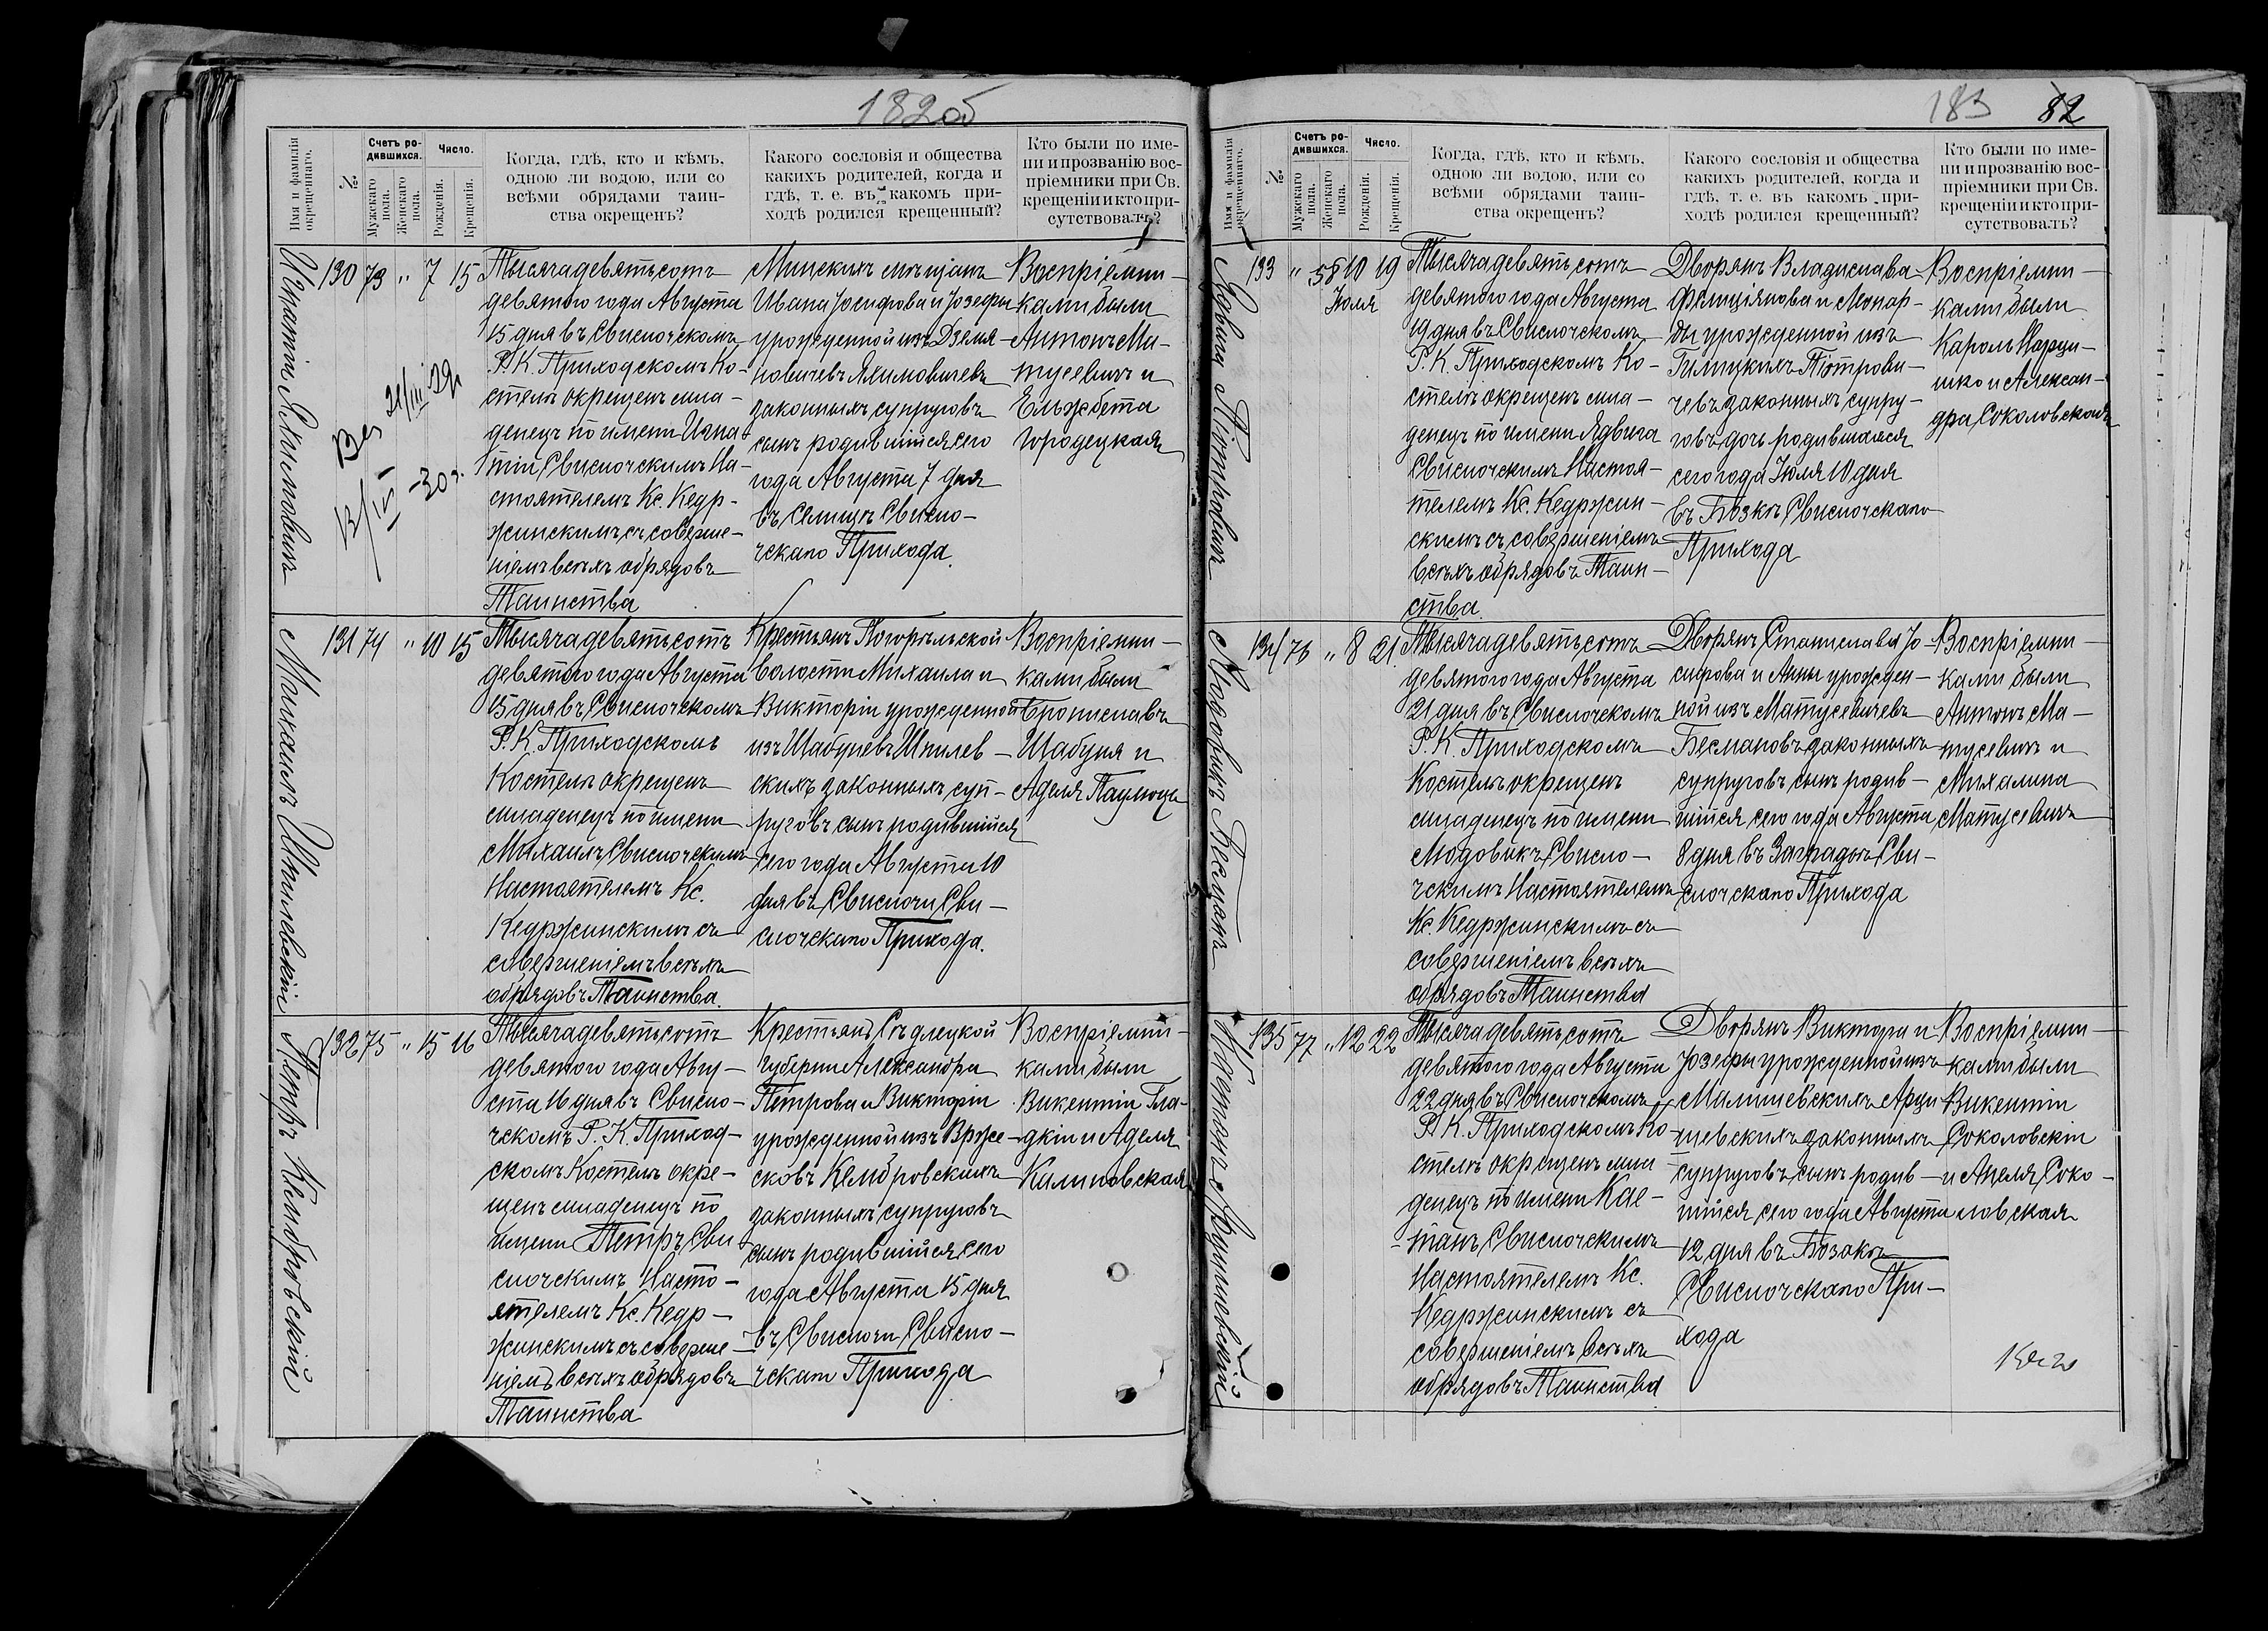 182об
Имя и фамилія окрещеннаго.
№
Счетъ родившихся.
Мужскаго пола.
Женскаго пола.
Число.
Рожденія.
Крещенія.
Когда, гдѣ, кто и кѣмъ,
одною ли водою, или со
всѣми обрядами таин-
ства окрещенъ?
Какого сословія и общества
какихъ родителей, когда и
гдѣ, т. е. въ какомъ при-
ходѣ родился крещенный?
Кто были по име-
ни и прозванію вос-
пріемники при Св.
крещеніи и кто при-
сутствовалъ?
Игнатій Яхимовичъ
130 73 " 7 15
Тысяча девятьсотъ
девятого года Августа
15 дня въ Свислочскомъ
Р. К. Приходскомъ Ко-
стелѣ окрещенъ мла-
денецъ по имени Игна-
тій Свислочскимъ На-
стоятелемъ Кс. Кедр-
жинскимъ съ соверше-
ніемъ всѣхъ обрядовъ
Таинства
Минскихъ мѣщанъ
Ивана Іосифова и Іозефы
урожденной изъ Дземя-
новичевъ Яхимовичевъ
законныхъ супруговъ
сынъ родившійся сего
года Августа 7 дня
въ Селищѣ Свисло-
чскаго Прихода.
Воспріемни-
ками были
Антонъ Ма-
тусевичъ и
Ельжбета
Городецкая
Михаилъ Шпилевскій
131 74 " 10 15
Тысяча девятьсотъ
девятого года Августа
15 дня въ Свислочскомъ
Р. К. Приходскомъ
Костелѣ окрещенъ
младенецъ по имени
Михаилъ Свислочскимъ
Настоятелемъ Кс.
Кедржинскимъ съ
совершеніемъ всѣхъ
обрядовъ Таинства.
Крестьянъ Погорѣльской
волости Михаила и
Викторіи урожденной
изъ Шабуневъ Шпилев-
скихъ законныхъ суп-
руговъ сынъ родившійся
сего года Августа 10
дня въ Свислочи Сви-
слочскаго Прихода.
Воспріемни-
ками были
Брониславъ
Шабуня и
Аделя Паулюць
Петръ Кембровскій
132 75 " 15 16
Тысяча девятьсотъ
девятого года Авгу-
ста 16 дня въ Свисло-
чскомъ Р. К. Приход-
скомъ Костелѣ окре-
щенъ младенецъ по
имени Петръ Сви-
слочскимъ Насто-
ятелемъ Кс. Кедр-
жинскимъ съ соверше-
ніемъ всѣхъ обрядовъ
Таинства
Крестьянъ Сѣдлецкой
губерніи Александра
Петрова и Викторіи
урожденной изъ Врже-
сковъ Кембровскихъ
законныхъ супруговъ
сынъ родившійся сего
года Августа 15 дня
въ Свислочи Свисло-
чскаго Прихода
Воспріемни-
ками были
Викентій Гла-
дкій и Аделя
Калиновская
183 82
Имя и фамилія окрещеннаго.
№
Счетъ родившихся.
Мужскаго пола.
Женскаго пола.
Число.
Рожденія.
Крещенія.
Когда, гдѣ, кто и кѣмъ,
одною ли водою, или со
всѣми обрядами таин-
ства окрещенъ?
Какого сословія и общества
какихъ родителей, когда и
гдѣ, т. е. въ какомъ при-
ходѣ родился крещенный?
Кто были по име-
ни и прозванію вос-
пріемники при Св.
крещеніи и кто при-
сутствовалъ?
Ядвига Піотровичъ
133 " 58 10 19
Іюля
Тысяча девятьсотъ
девятого года Августа
19 дня въ Свислочскомъ
Р. К. Приходскомъ Ко-
стелѣ окрещенъ мла-
денецъ по имени Ядвига
Свислочскимъ Настоя-
телемъ Кс. Кедржин-
скимъ съ совершеніемъ
всѣхъ обрядовъ Таин-
ства.
Дворянъ Владислава
Фелиціянова и Леонар-
ды урожденной изъ
Гилицкихъ Піотрови-
чевъ законныхъ супру-
говъ дочь родившаяся
сего года Іюля 10 дня
въ Бозкѣ Свислочскаго
Прихода
Воспріемни-
ками были
Кароль Нарци-
шко и Алексан-
дра Соколовская
Людовикъ Бесманъ
134 76 " 8 21.
Тысяча девятьсотъ
девятого года Августа
21 дня въ Свислочскомъ
Р. К. Приходскомъ
Костелѣ окрещенъ
младенецъ по имени
Людовикъ Свисло-
чскимъ Настоятелемъ
Кс. Кедржинскимъ съ
совершеніемъ всѣхъ
обрядовъ Таинства
Дворянъ Станислава Іо-
сифова и Анны урожден-
ной изъ Матусевичевъ
Бесмановъ законныхъ
супруговъ сынъ родив-
шійся сего года Августа
8 дня въ Заградьѣ Сви-
слочскаго Прихода
Воспріемни-
ками были
Антонъ Ма-
тусевичъ и
Михалина
Матусевичъ
135 77 " 12 22
Тысяча девятьсотъ
девятого года Августа
22 дня въ Свислочскомъ
Р. К. Приходскомъ Ко-
стелѣ окрещенъ мла-
денецъ по имени Кае-
танъ Свислочскимъ
Настоятелемъ Кс.
Кедржинскимъ съ
совершеніемъ всѣхъ
обрядовъ Таинства
Дворянъ Виктора и
Іозефы урожденной изъ
Малишевскихъ Арци-
шевскихъ законныхъ
супруговъ сынъ родив-
шійся сего года Августа
12 дня въ Бозокѣ
Свислочскаго При-
хода
Воспріемни-
ками были
Викентій
Соколовскій
и Анеля Соко-
ловская